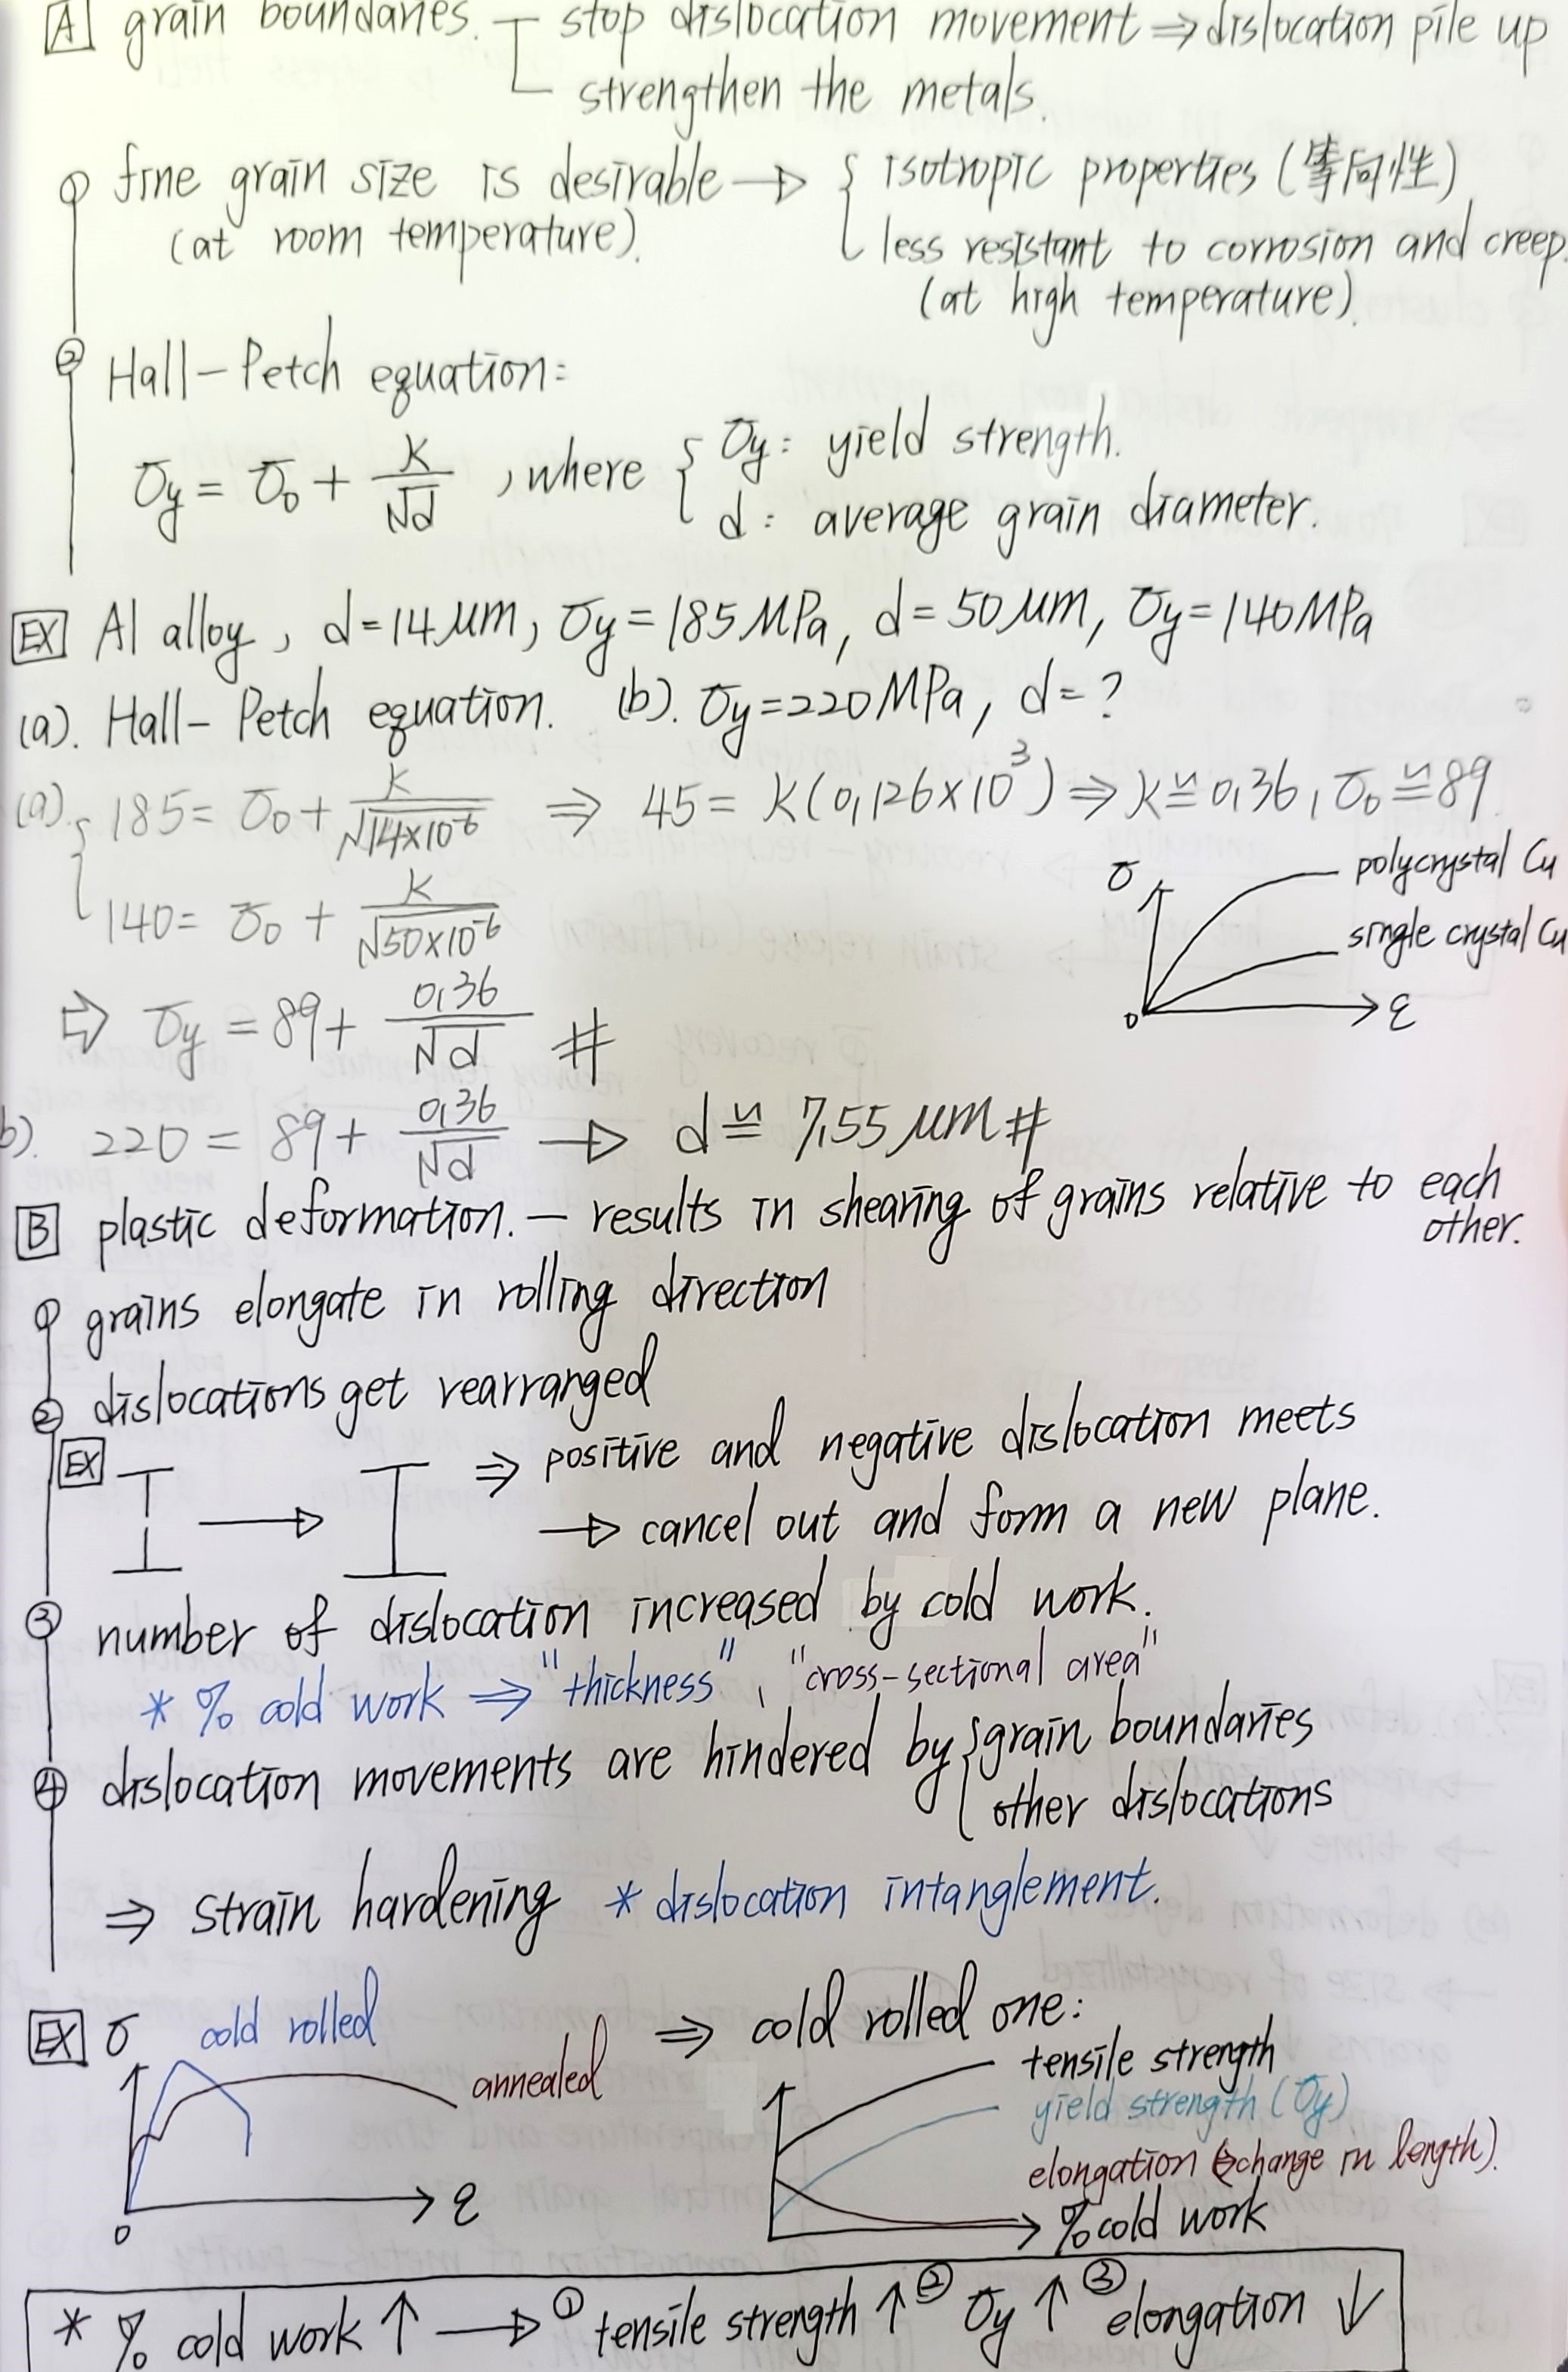 A grain boundaries. stop dislocation movement ⇒ dislocation pile up
strengthen the metals.
① fine grain size is desirable → { isotropic properties (等向性)
(at room temperature). less resistant to corrosion and creep.
(at high temperature).
② Hall-Petch equation:
σy = σ0 + K/√d , where { σy: yield strength.
d: average grain diameter.
EX Al alloy, d=14μm, σy=185MPa, d=50μm, σy=140MPa
(a). Hall-Petch equation. (b). σy=220MPa, d=?
(a). { 185= σ0 + K/√14×10^-6 ⇒ 45= K(0,126×10^3) ⇒ K≌0,36, σ0≌89
140= σ0 + K/√50×10^-6
σ polycrystal Cu
single crystal Cu
0 ε
⇒ σy = 89+ 0,36/√d #
b). 220 = 89+ 0,36/√d → d≌ 7,55 μm #
B plastic deformation. — results in shearing of grains relative to each
other.
① grains elongate in rolling direction
② dislocations get rearranged
EX ⇒ positive and negative dislocation meets
→ cancel out and form a new plane.
③ number of dislocation increased by cold work.
* % cold work ⇒ "thickness", "cross-sectional area"
④ dislocation movements are hindered by { grain boundaries
other dislocations
⇒ strain hardening * dislocation intanglement.
EX σ cold rolled ⇒ cold rolled one:
annealed
0 ε
tensile strength
yield strength (σy)
elongation (⇒change in length).
% cold work
* % cold work ↑ → ① tensile strength ↑ ② σy ↑ ③ elongation ↓